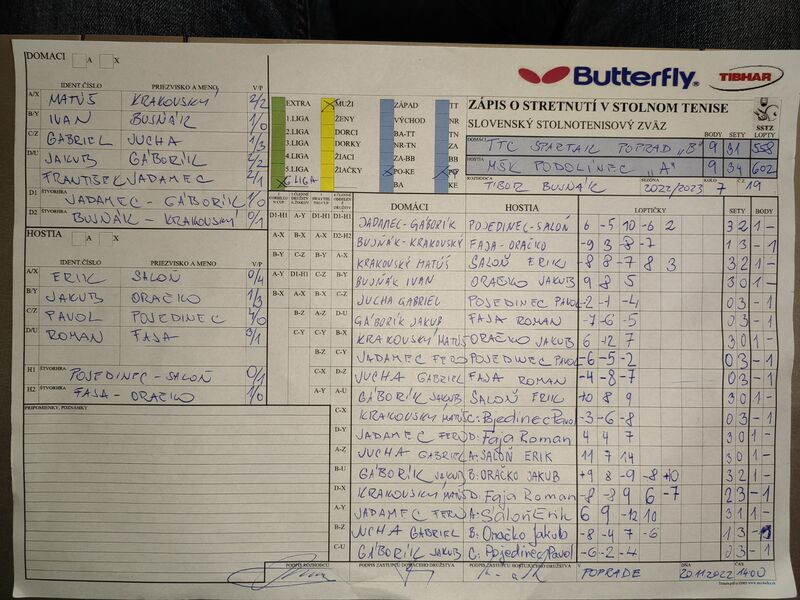 DOMACI A X
IDENT.ČÍSLO PRIEZVISKO A MENO V/P
A/X MATÚŠ KRAKOVSKÝ 2/2
B/Y IVAN BUJŇÁK 1/0
C/Z GABRIEL JUCHA 1/3
D/U JAKUB GÁBORÍK 2/2
FRANTIŠEK JADAMEC 2/1
D1 ŠTVORHRA JADAMEC - GÁBORÍK 1/0
D2 BUJŇÁK - KRAKOVSKÝ 0/1
HOSTIA A X
IDENT.ČÍSLO PRIEZVISKO A MENO V/P
A/X ERIK SALOŇ 0/4
B/Y JAKUB ORAČKO 1/3
C/Z PAVOL POJEDINEC 4/0
D/U ROMAN FAJA 3/1
H1 ŠTVORHRA POJEDINEC - SALOŇ 0/1
H2 FAJA - ORAČKO 1/0
PRIPOMIENKY, POZNÁMKY
EXTRA
1.LIGA
2.LIGA
3.LIGA
4.LIGA
5.LIGA
6 LIGA
MUŽI
ŽENY
DORCI
DORKY
ŽIACI
ŽIAČKY
ZÁPAD
VÝCHOD
BA-TT
TN-ZA
ZA-BB
PO-KE
BA
TT
TN
NR
ZA
BB
PO
KE
Butterfly
TIBHAR
ZÁPIS O STRETNUTÍ V STOLNOM TENISE
SLOVENSKÝ STOLNOTENISOVÝ ZVÄZ
SSTZ
BODY SETY LOPTY
DOMÁCI TTC SPARTAK POPRAD "B" 9 31 558
HOSTIA MŠK PODOLÍNEC "A" 9 34 602
TIBOR BUJŇÁK SEZÓNA 2022/2023 KOLO 7 19
DOMÁCI HOSTIA LOPTIČKY SETY BODY
D1-H1 A-Y D1-H1 D1-H1 JADAMEC-GÁBORÍK POJEDINEC-SALOŇ 6 -5 10 -6 2 3 2 1 -
A-X B-X A-X D2-H2 BUJŇÁK-KRAKOVSKÝ FAJA-ORAČKO -9 3 -8 -7 1 3 - 1
B-Y C-Z B-Y A-X KRAKOVSKÝ MATÚŠ SALOŇ ERIK -8 8 -7 8 3 3 2 1 -
A-Y D1-H1 C-Z B-Y BUJŇÁK IVAN ORAČKO JAKUB 9 8 5 3 0 1 -
B-X A-X B-X C-Z JUCHA GABRIEL POJEDINEC PAVOL -2 -1 -4 0 3 - 1
B-Z A-Z D-U GÁBORÍK JAKUB FAJA ROMAN -7 -6 -5 0 3 - 1
C-Y C-Y B-X KRAKOVSKÝ MATÚŠ ORAČKO JAKUB 6 12 7 3 0 1 -
B-Z C-Y JADAMEC FERO POJEDINEC PAVOL -6 -5 -2 0 3 - 1
C-X D-Z JUCHA GABRIEL FAJA ROMAN -4 -8 -7 0 3 - 1
A-Y A-U GÁBORÍK JAKUB SALOŇ ERIK +10 8 9 3 0 1 -
C-X KRAKOVSKÝ MATÚŠ C: Pojedinec Pavol -3 -6 -8 0 3 - 1
D-Y JADAMEC FERO D: Faja Roman 4 4 7 3 0 1 -
A-Z JUCHA GABRIEL A: SALOŇ ERIK 11 7 14 3 0 1 -
B-U GÁBORÍK JAKUB B: ORAČKO JAKUB +9 8 -9 -8 +10 3 2 1 -
D-X KRAKOVSKÝ MATÚŠ D: Faja Roman -8 -8 9 6 -7 2 3 - 1
A-Y JADAMEC FERO A: Saloň Erik 6 9 -12 10 3 1 1 -
B-Z JUCHA GABRIEL B: Oračko Jakub -8 -4 7 -6 1 3 - 1
C-U GÁBORÍK JAKUB C: Pojedinec Pavol -6 -2 -4 0 3 - 1
PODPIS ROZHODCU PODPIS ZÁSTUPCU DOMÁCEHO DRUŽSTVA PODPIS ZÁSTUPCU HOSŤUJÚCEHO DRUŽSTVA V POPRADE DŇA 20.11.2022 ČAS 14:00